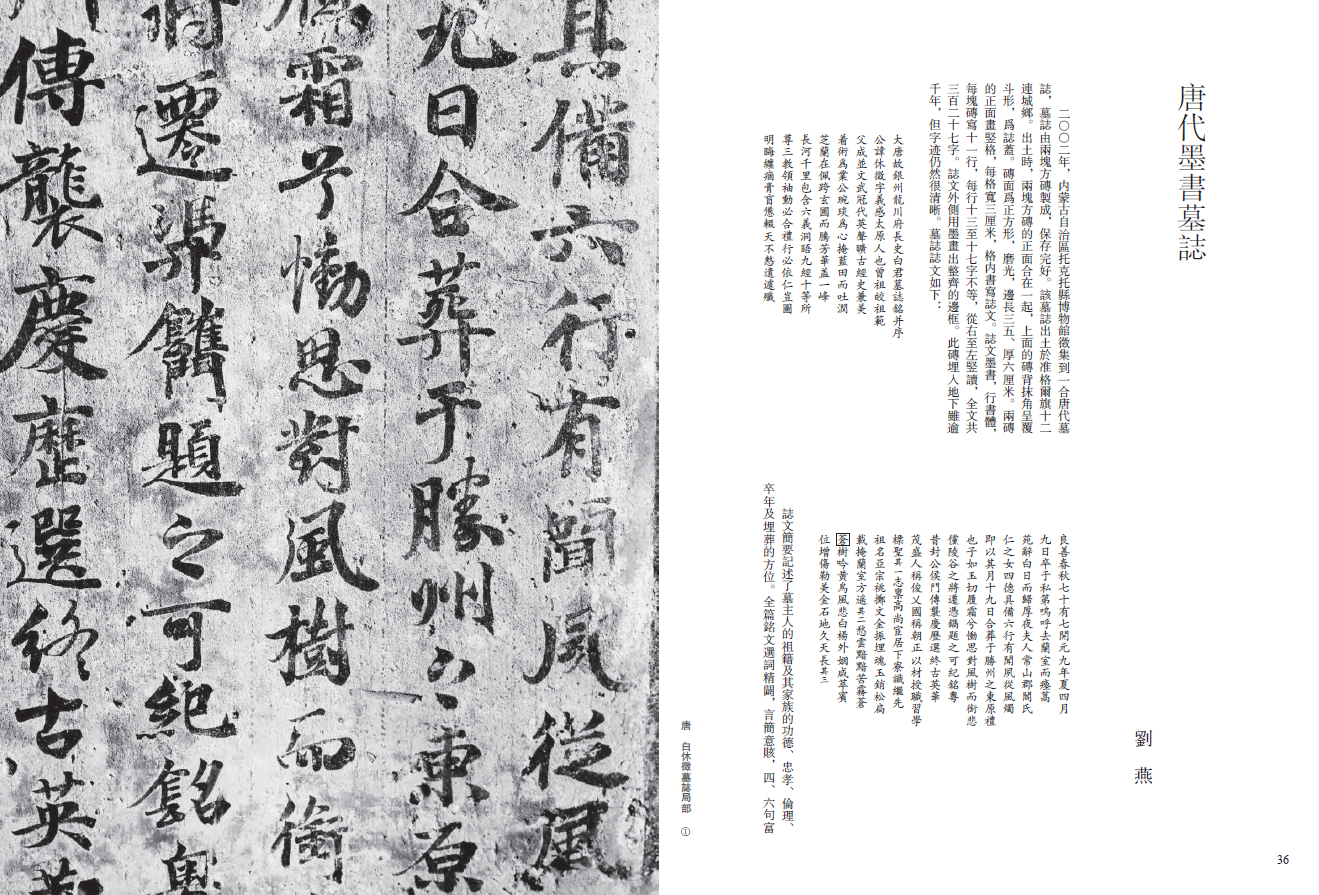 唐代墨書墓誌
劉 燕
二〇〇二年，内蒙古自治區托克托縣博物館徵集到一合唐代墓
誌，墓誌由兩塊方磚製成，保存完好。該墓誌出土於准格爾旗十二
連城鄉。出土時，兩塊方磚的正面合在一起，上面的磚背抹角呈覆
斗形，爲誌蓋。磚面爲正方形，磨光，邊長三五、厚六厘米。兩磚
的正面畫竪格，每格寬三厘米，格内書寫誌文。誌文墨書，行書體，
每塊磚寫十一行，每行十三至十七字不等，從右至左竪讀，全文共
三百二十七字。誌文外側用墨畫出整齊的邊框。此磚埋入地下雖逾
千年，但字迹仍然很清晰。墓誌誌文如下：
大唐故銀州龍川府長史白君墓誌銘并序
公諱休徵字義感太原人也曾祖皎祖範
父成並文武冠代英聲曠古經史兼美
着術爲業公琬琰爲心掩藍田而吐潤
芝蘭在佩跨玄圃而騰芳華盖一峰
長河千里包含六義洞晤九經十等所
尊三教領袖動必合禮行必依仁豈圖
明晦纏痾膏肓僁輟天不憗遺遽殲
良善春秋七十有七開元九年夏四月
九日卒于私第嗚呼去蘭室而瘗蒿
苑辭白日而歸厚夜夫人常山郡閻氏
仁之女四德具備六行有聞夙從風燭
即以其月十九日合葬于勝州之東原禮
也子如玉切履霜兮慟思對風樹而銜悲
儻陵谷之將遷憑鐫題之可紀銘粤
昔封公侯門傳襲慶歷選終古英華
茂盛人稱俊乂國稱朝正以材授職習學
標聖其一志禀高尚宦居下寮識繼先
祖名亞宗祧擲文金振埋魂玉銷松扃
載掩蘭室方遥其二愁雲黯黯苦霧蒼
蒼樹吟黄鳥風悲白楊外姻咸萃賓
位增傷勒美金石地久天長其三
誌文簡要記述了墓主人的祖籍及其家族的功德、忠孝、倫理、
卒年及埋葬的方位。全篇銘文選詞精闢，言簡意賅，四、六句富
唐 白休徵墓誌局部 ①
36
具備六行有聞夙從風
九日合葬于勝州之東原
霜兮慟思對風樹而銜
將遷憑鐫題之可紀銘粤
傳襲慶歷選終古英